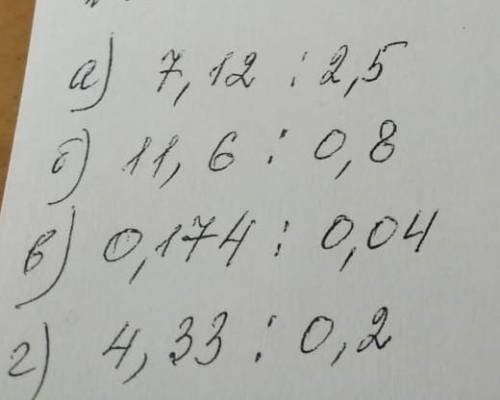 а) 7,12 : 2,5
б) 11,6 : 0,8
в) 0,174 : 0,04
г) 4,33 : 0,2